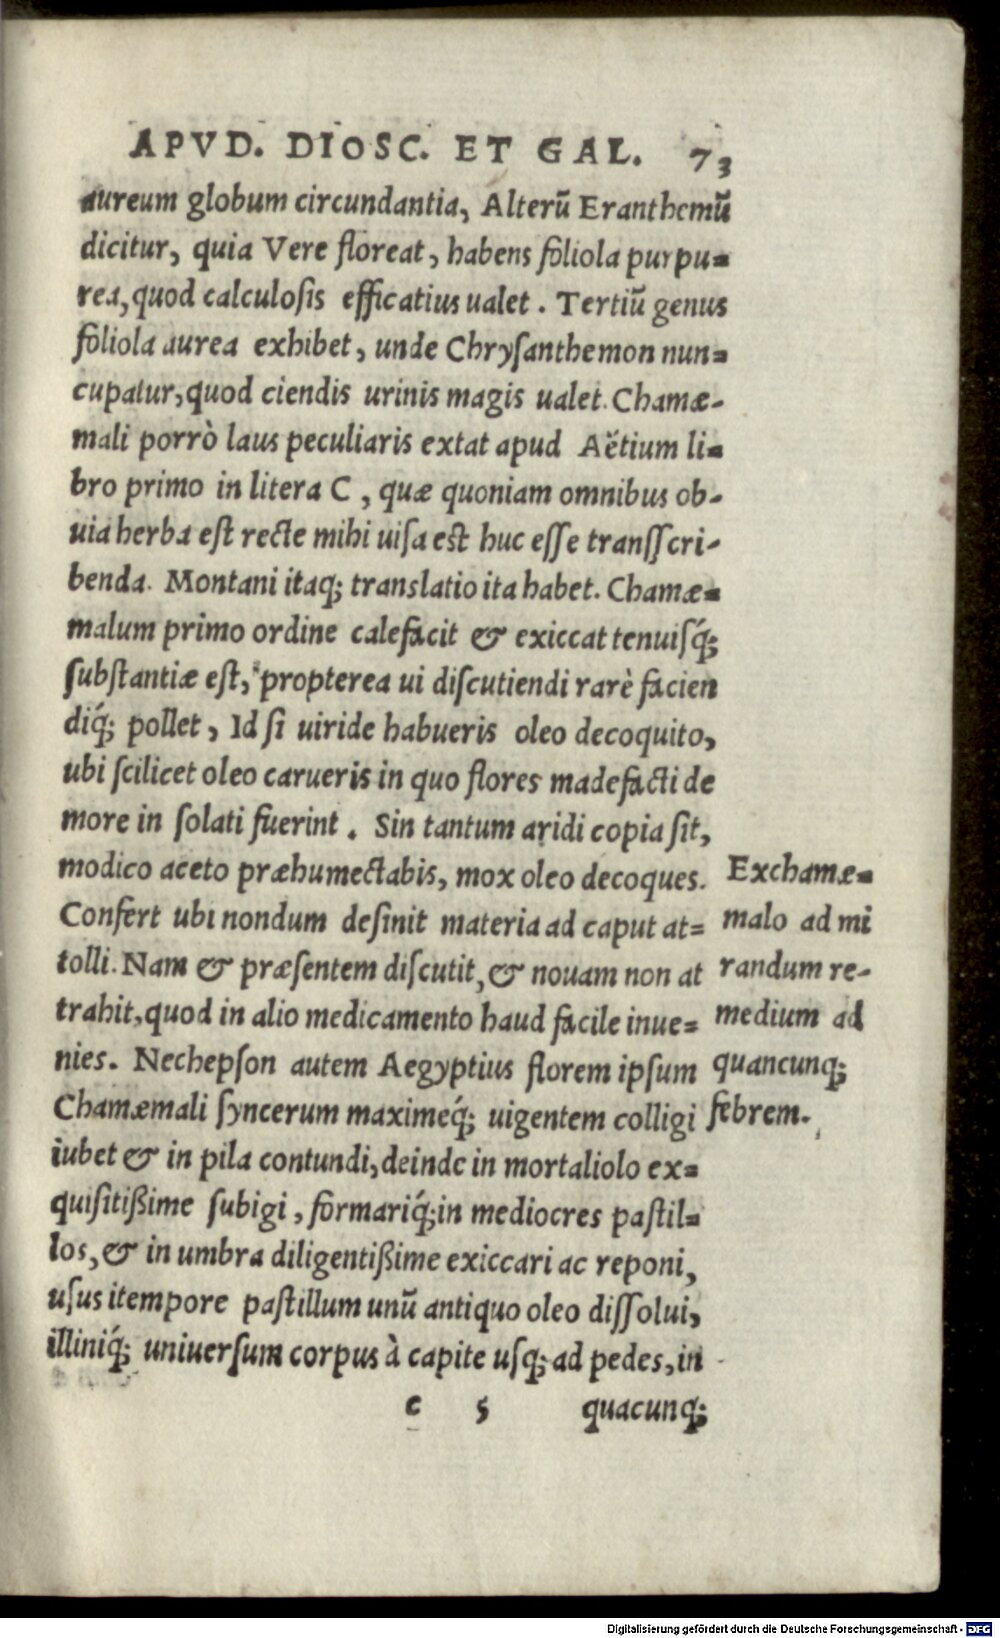 APVD. DIOSC. ET GAL. 73
aureum globum circundantia, Alterũ Eranthemũ
dicitur, quia Vere floreat, habens foliola purpu=
rea, quod calculosis efficatius ualet. Tertiũ genus
foliola aurea exhibet, unde Chrysanthemon nun=
cupatur, quod ciendis urinis magis ualet. Chamæ-
mali porrò laus peculiaris extat apud Aëtium li=
bro primo in litera C, quæ quoniam omnibus ob-
uia herba est recte mihi uisa est huc esse transscri-
benda. Montani itaq; translatio ita habet. Chamæ=
malum primo ordine calefacit & exiccat tenuisq́;
substantiæ est, propterea ui discutiendi rarè facien
diq́; pollet, Id si uiride habueris oleo decoquito,
ubi scilicet oleo carueris in quo flores madefacti de
more in solati fuerint. Sin tantum aridi copia sit,
modico aceto præhumectabis, mox oleo decoques.
Confert ubi nondum desinit materia ad caput at=
tolli. Nam & præsentem discutit, & nouam non at
trahit, quod in alio medicamento haud facile inue=
nies. Nechepson autem Aegyptius florem ipsum
Chamæmali syncerum maximeq́; uigentem colligi
iubet & in pila contundi, deinde in mortaliolo ex=
quisitißime subigi, formariq́; in mediocres pastil=
los, & in umbra diligentißime exiccari ac reponi,
usus itempore pastillum unũ antiquo oleo dissolui,
illiniq́; uniuersum corpus à capite usq; ad pedes, in
c 5 quacunq;
Exchamæ=
malo ad mi
randum re-
medium ad
quancunq;
febrem.
Digitalisierung gefördert durch die Deutsche Forschungsgemeinschaft - DFG